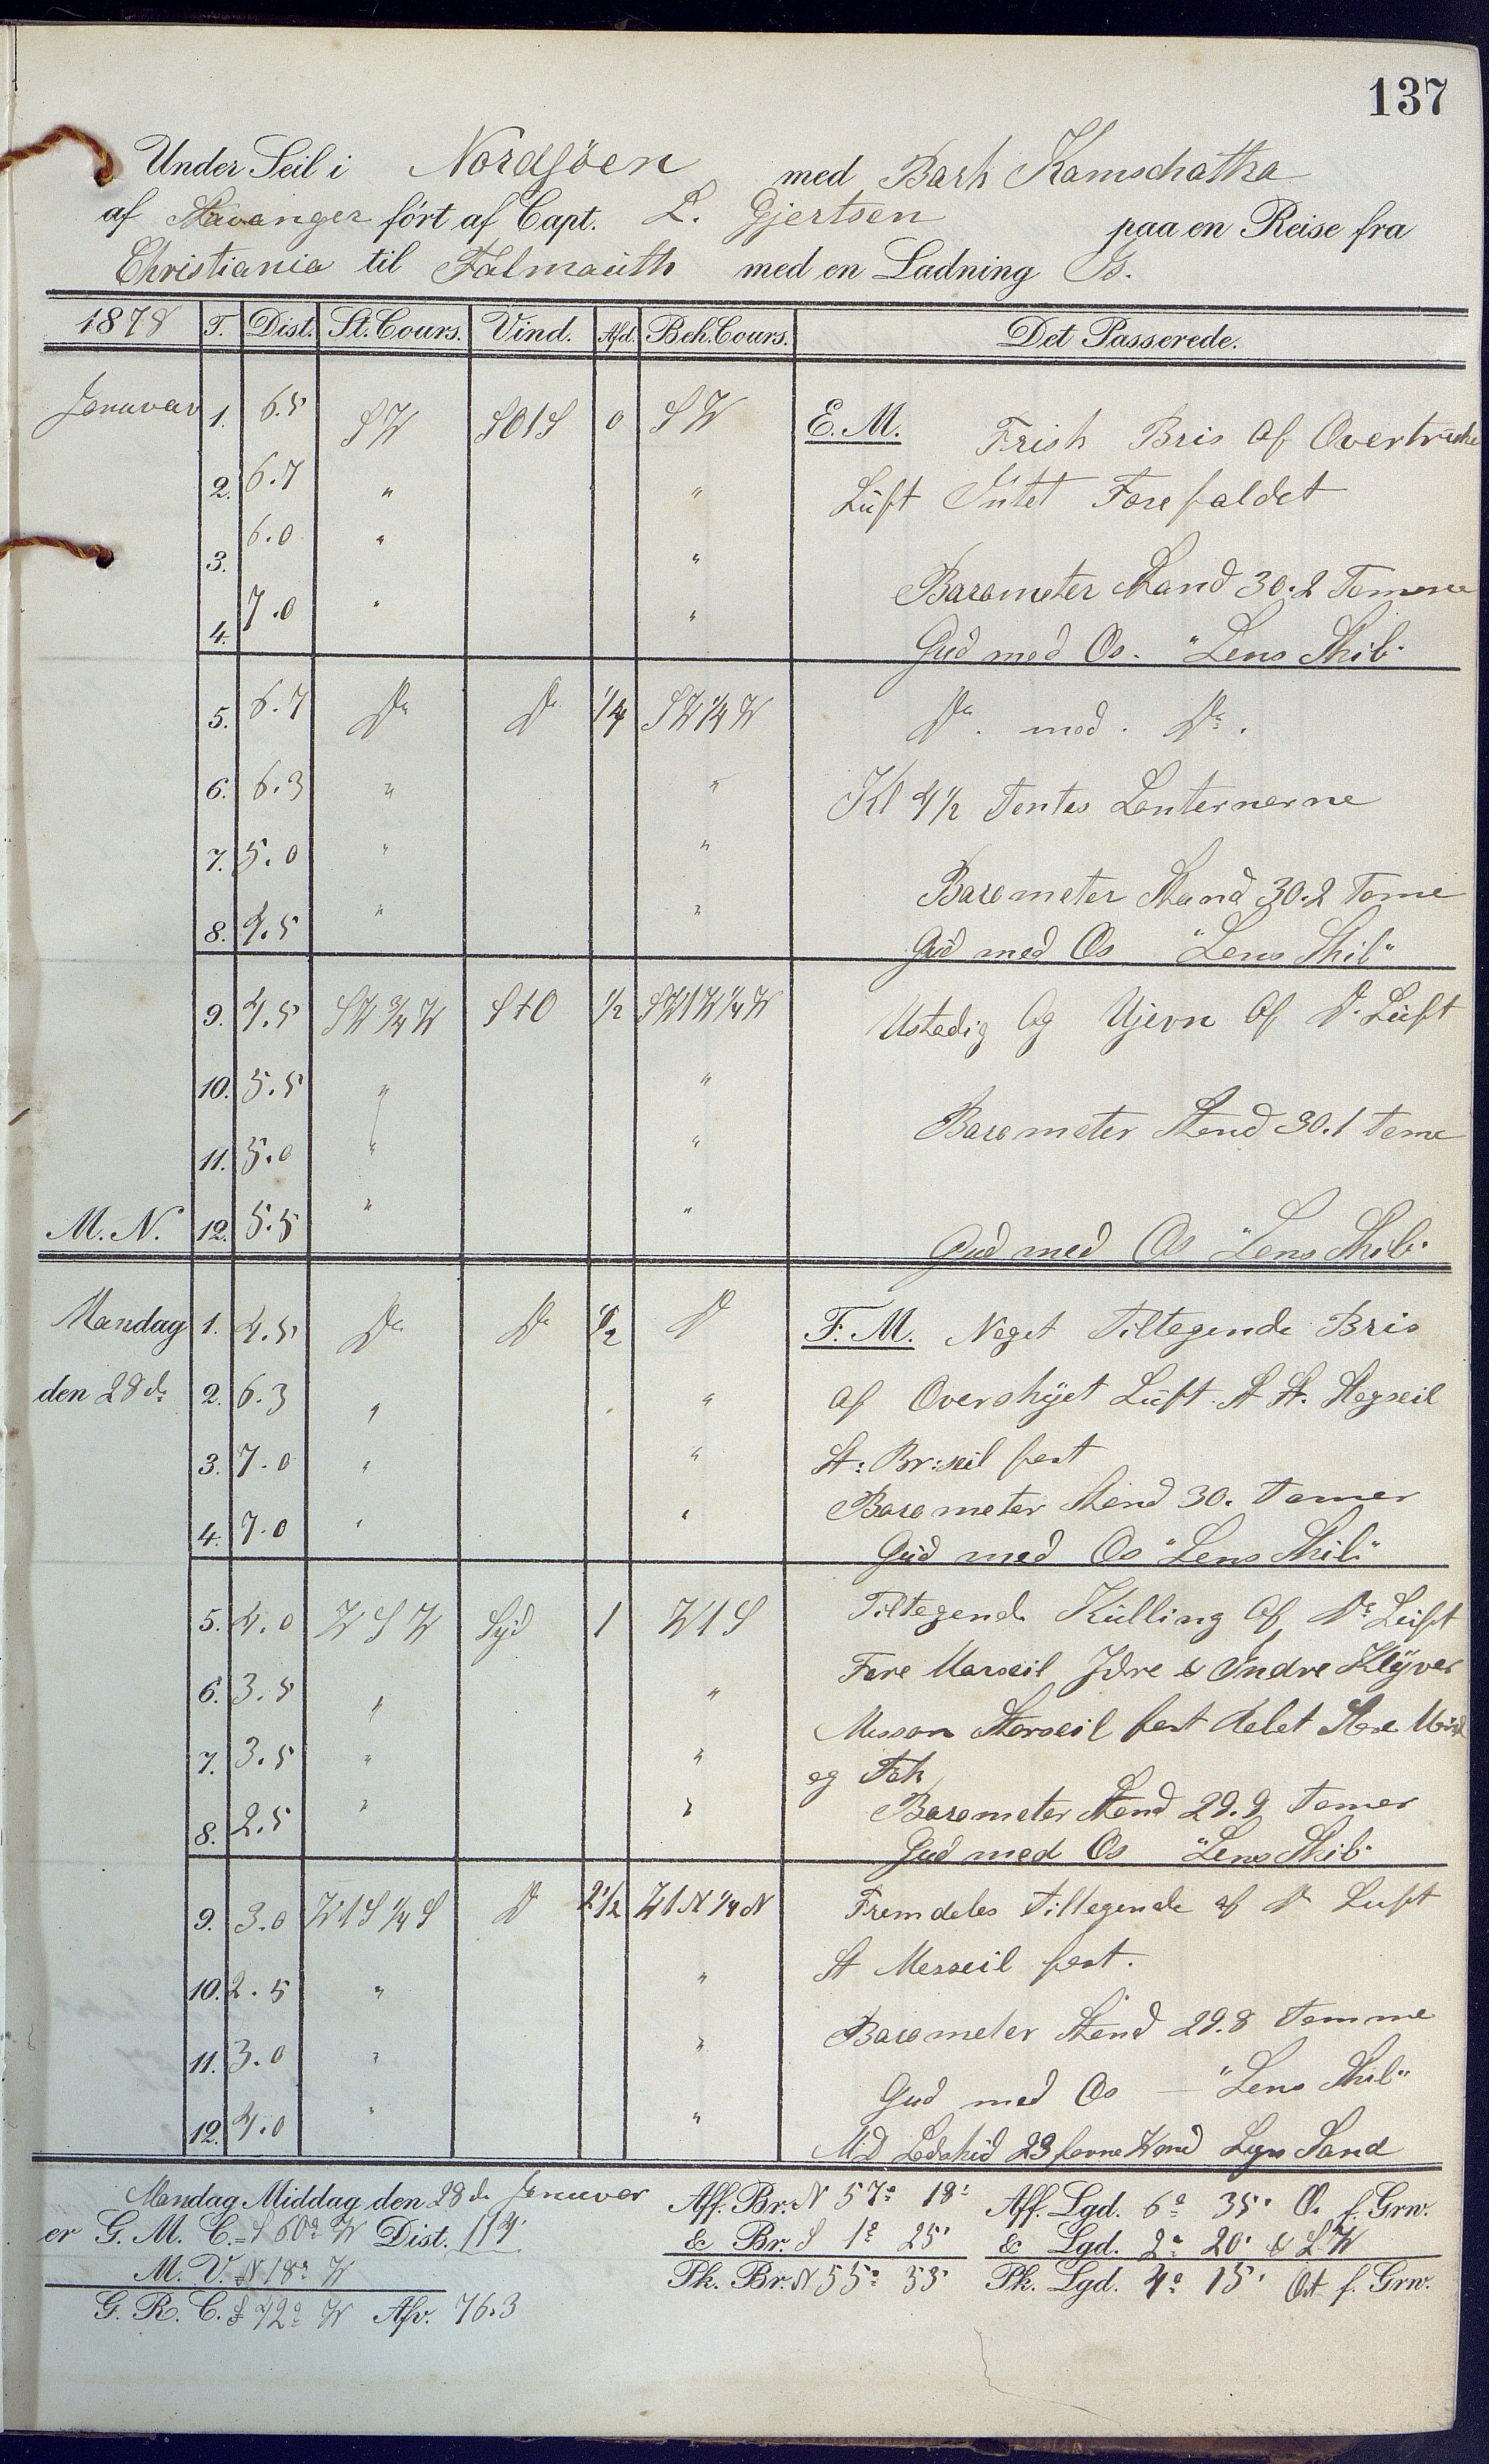 137
Under Seil i Nordsöen med Bark Kamschatka
af Stavanger fört af Capt. L. Gjertsen paa en Reise fra
Christiania til Falmouth med en Ladning Is.
1878 T. Dist. St. Cours. Vind. Afd. Beh. Cours. Det Passerede.
Januvar 1. 6.5 SW SO1S 0 SW E. M. Frish Bris af Overtrukke
2. 6.7 " " Luft Intet Forefaldet
3. 6.0 " "
Barometer Stand 30.2 Tomme
4. 7.0 " "
Gud med Os. "Lens Skib"
5. 6.7 Do Do 1/4 SW 1/4 W Do. med. Do.
6. 6.3 " " Kl 4 1/2 Tentes Lanternerne
7. 5.0 " "
Barometer Stand 30.2 Tome
8. 4.5 " "
Gud med Os "Lens Skib"
9. 4.5 SW 3/4 W StO 1/2 SW1W 1/4 W Ustadig Og Ujevn Af Do Luft
10. 5.5 " "
Barometer Stand 30.1 Tome
11. 5.0 " "
M. N. 12. 5.5 " "
Gud med Os "Lens Skib"
Mandag 1. 4.5 Do Do 1/2 Do F. M. Noget Tiltagende Bris
den 28de 2. 6.3 " " af Overskyet Luft. St St. Stagseil
3. 7.0 " " St: Br:seil fast
Barometer Stand 30. Tomer
4. 7.0 " "
Gud med Os "Lens Skib"
5. 4.0 WSW Syd 1 W1S Tiltagend Kulling Af Do Luft
6. 3.5 " " Fore Marseil Jdre & Indre Klyver
Messan Storseil fast
7. 3.5 " " og Fok
Barometer Stand 29.9 Tomer
8. 2.5 " "
Gud med Os "Lens Skib"
9. 3.0 W1S 1/4 S Do 2 1/2 W1N 1/4 N Fremdeles Tiltagende af Do Luft
10. 2.5 " " St Merseil fast.
Barometer Stand 29.8 Tomme
11. 3.0 " "
Gud med Os — "Lens Skib"
12. 4.0 " "
MD Lodskud 23 favne Vand Lys Sand
Mandag Middag den 28de Januver Aff. Br. N 57° 18' Aff. Lgd. 6° 35' O. f. Grw.
er G. M. C. = S 60° W Dist. 114' & Br. S 1° 25' & Lgd. 2° 20' W
M. V. N 18° W Pk. Br. N 55° 53' Pk. Lgd. 4° 15' Ost f. Grw.
G. R. C. S 42° W Afv. 76.3